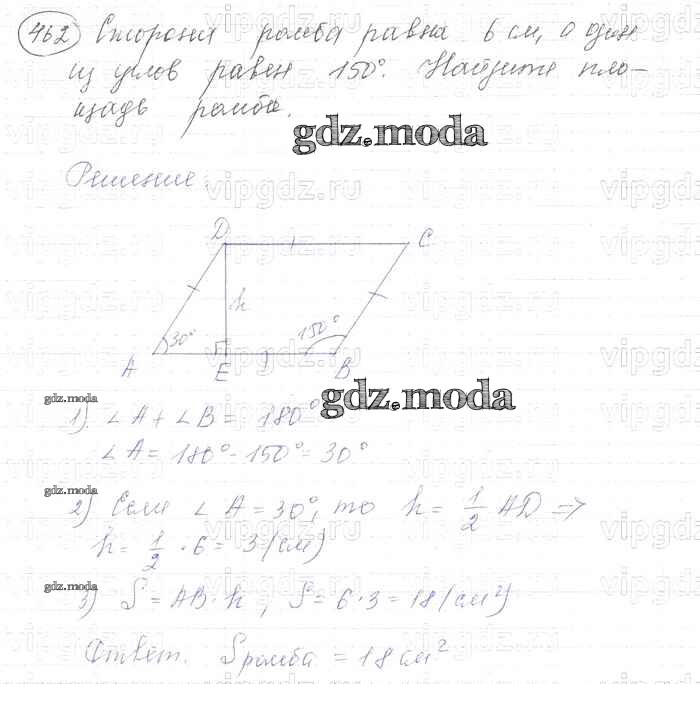 462 Сторона ромба равна 6 см, а один
из углов равен 150°. Найдите пло-
щадь ромба.
gdz.moda
Решение:
vipgdz.ru
D C
h
30° 150°
A E B
gdz.moda
gdz.moda
1) ∠A + ∠B = 180°
∠A = 180° - 150° = 30°
gdz.moda
2) Если ∠A = 30°, то h = 1/2 AD =>
h = 1/2 · 6 = 3 (см)
gdz.moda
3) S = AB · h, S = 6 · 3 = 18 (см²)
Ответ. Sромба = 18 см²